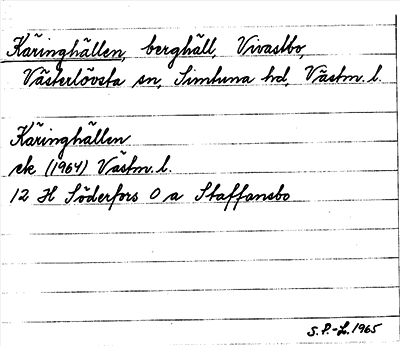 Käringhällen, berghäll, Vivastbo,
Västerlövsta sn, Simtuna hd, Västm. l.
Käringhällen
ek (1964) Västm. l.
12 H Söderfors 0 a Staffansbo
S. P.-L. 1965